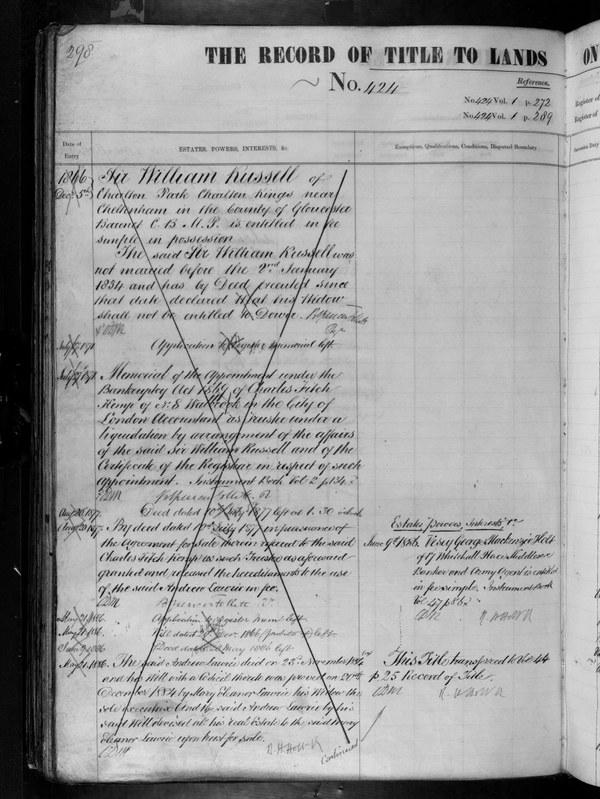 298
THE RECORD OF TITLE TO LANDS
ON
No. 424
Reference.
No. 424 Vol. 1 p. 272
No. 424 Vol. 1 p. 289
Register of
Register of
Date of
Entry
ESTATES, POWERS, INTERESTS, &c.
Exemptions, Qualifications, Conditions, Disputed Boundary
Succession Duty
1866
Decr. 5th
Sir William Russell of
Charlton Park Charlton Kings near
Cheltenham in the County of Gloucester
Baronet C. B. M. P. is entitled in fee
simple in possession
The said Sir William Russell was
not married before the 2nd January
1834 and has by Deed executed since
that date declared that his Widow
shall not be entitled to Dower.
Application to Register Memorial left
Memorial of the Appointment under the
Bankruptcy Act 1869 of Charles Fitch
Kemp of No. 8 Walbrook in the City of
London Accountant as Trustee under a
liquidation by arrangement of the affairs
of the said Sir William Russell and of the
Certificate of the Registrar in respect of such
appointment. Instrument Book Vol. 2 p.
Deed dated 10th July 1877 left at 1.30 o'clock
By deed dated July 1877 in pursuance of
the agreement for sale therein recited to the said
Charles Fitch Kemp as such Trustee as aforesaid
granted and released the hereditaments to the use
of the said Andrew Lawrie in fee.
Estates, Powers, Interests &c.
June 9th 1886. Vesey George Mackenzie Holt
of 17 Whitehall Place Middlesex
Banker and Army Agent is entitled
in fee simple. Instrument Book
Vol. 47 p.
May 21. 1886. Application to register transf. left
May 21. 1886. Will dated left
Deed dated May 1886 left
May 21. 1886. The said Andrew Lawrie died on 23rd November 1884
and his Will with a Codicil thereto was proved on
December 1884 by Mary Eleanor Lawrie his Widow the
sole executrix and the said Andrew Lawrie by his
said Will devised all his real Estate to the said Mary
Eleanor Lawrie upon trust for sale.
This Title transferred to Vol. 44
p 25 Record of Title.
Continued